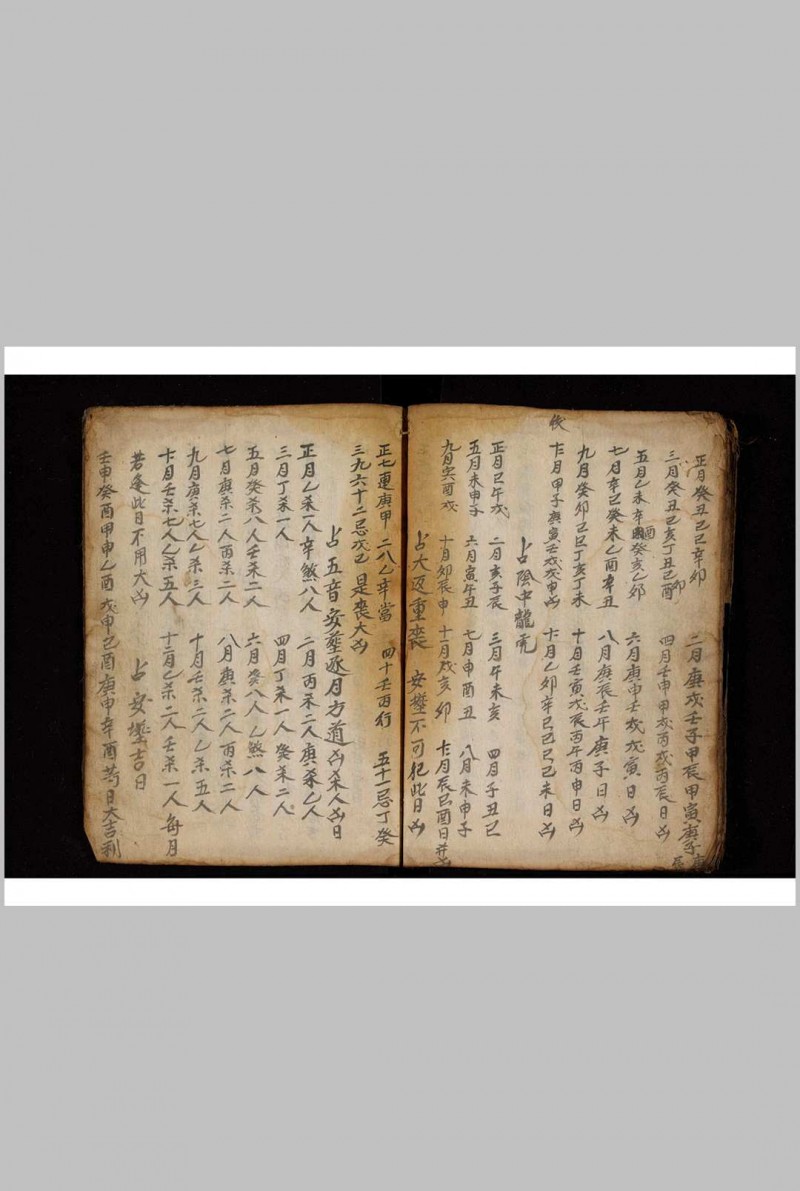 正月癸丑己巳辛卯 二月庚戌壬子甲辰甲寅庚子
三月癸丑己亥丁丑己酉 四月壬申甲戌丙戌丙辰日凶
五月乙未辛酉癸亥乙卯 六月庚申壬戌戊寅日凶
七月辛巳癸未乙酉辛丑 八月庚辰壬午庚子日凶
九月癸卯己巳丁亥丁未 十月壬寅戊辰丙午丙申日凶
十一月甲子庚寅壬戌戊申凶 十二月乙卯辛巳己巳己未日凶
後
占陰中龍虎
正月巳午戌 二月亥子辰 三月午未亥 四月子丑巳
五月未申子 六月寅午丑 七月申酉丑 八月未申子
九月亥酉戌 十月卯辰申 十一月戌亥卯 十二月辰巳酉日并凶
占大返重喪 安塟不可犯此日凶
正七連庚甲 二八乙辛當 四十壬丙行 五十一忌丁癸
三九六十二忌戊己 是喪大凶
占五音安塟逐月方道凶杀人凶日
正月乙杀一人辛煞八人 二月丙杀二人庚杀乙人
三月丁杀一人 四月丁杀一人癸杀二人
五月癸杀八人壬杀二人 六月癸八人乙煞八人
七月庚杀二人丙杀二人 八月庚杀二人丙杀二人
九月庚杀七人乙杀三人 十月壬杀二人乙杀五人
十一月壬杀七人乙杀五人 十二月乙杀二人壬杀一人每月
若逢此日不用大凶 占安塟吉日
壬申癸酉甲申乙酉戊申己酉庚申辛酉茍日大吉利